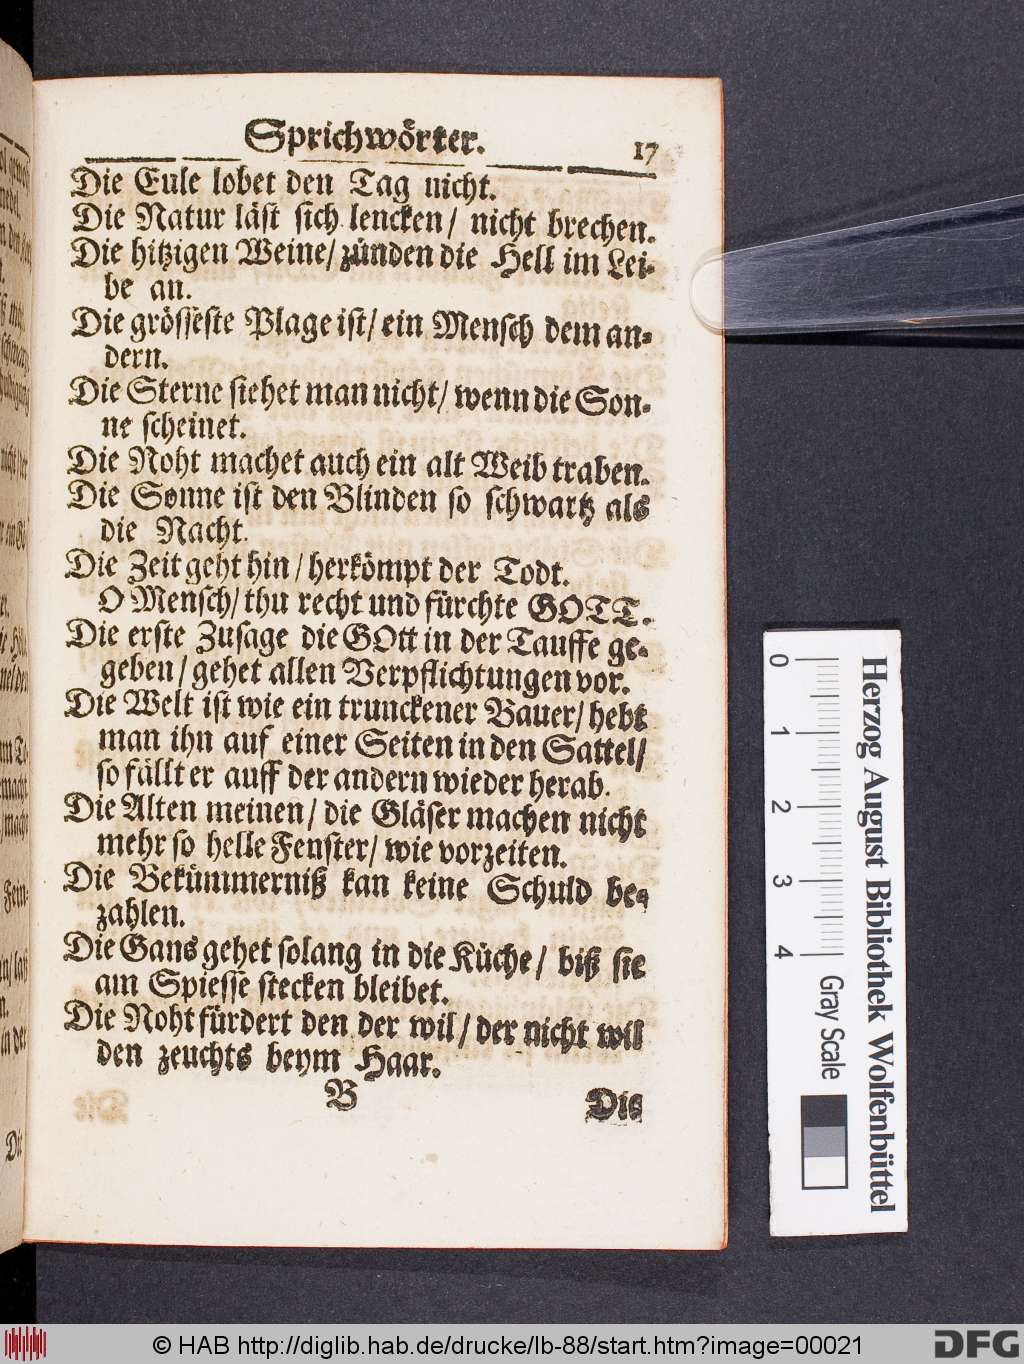 Sprichwörter. 17
Die Eule lobet den Tag nicht.
Die Natur läst sich lencken/ nicht brechen.
Die hitzigen Weine/ zünden die Hell im Lei-
be an.
Die grösseste Plage ist/ ein Mensch dem an-
dern.
Die Sterne siehet man nicht/ wenn die Son-
ne scheinet.
Die Noht machet auch ein alt Weib traben.
Die Sonne ist den Blinden so schwartz als
die Nacht.
Die Zeit geht hin/ herkömpt der Todt.
O Mensch/ thu recht und fürchte GOTT.
Die erste Zusage die GOtt in der Tauffe ge-
geben/ gehet allen Verpflichtungen vor.
Die Welt ist wie ein trunckener Bauer/ hebt
man ihn auf einer Seiten in den Sattel/
so fällt er auff der andern wieder herab.
Die Alten meinen/ die Gläser machen nicht
mehr so helle Fenster/ wie vorzeiten.
Die Bekümmerniß kan keine Schuld be-
zahlen.
Die Gans gehet solang in die Küche/ biß sie
am Spiesse stecken bleibet.
Die Noht fürdert den der wil/ der nicht wil
den zeuchts beym Haar.
B Die
0 1 2 3 4 Gray Scale
Herzog August Bibliothek Wolfenbüttel
© HAB http://diglib.hab.de/drucke/lb-88/start.htm?image=00021
DFG